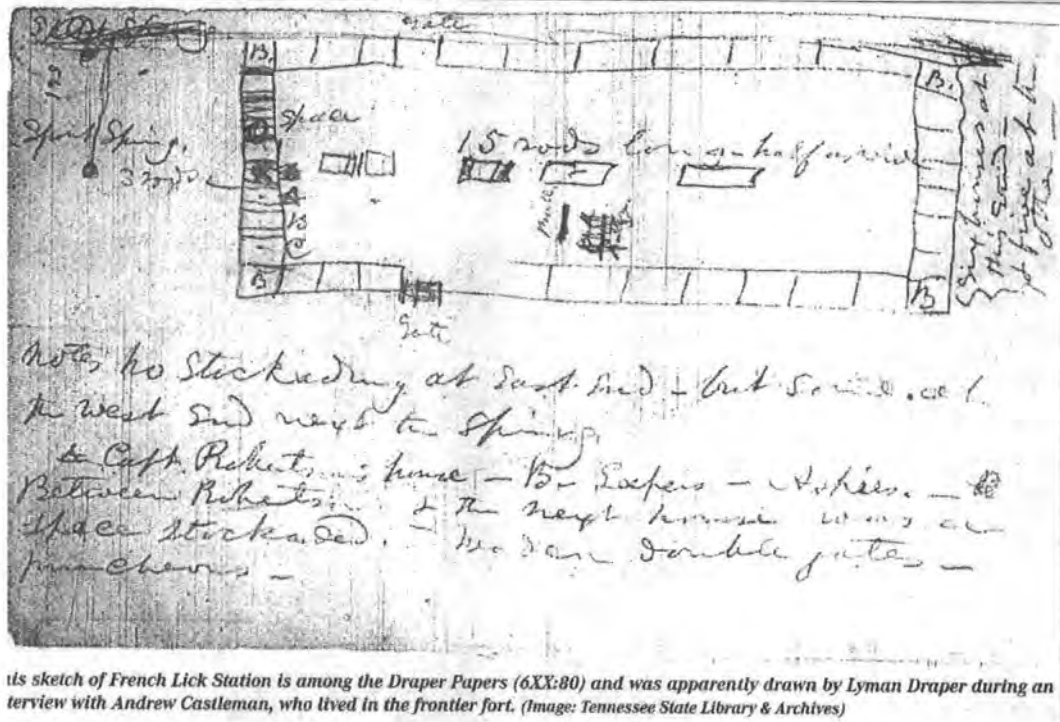 Gate
B.
B.
Spring.
3 rods
space
15 rods long - half as wide
A
B
C
B
B
Gate
Six houses at
this end
& five at the
other
Note, no Stockading at East End - but some at
the West End next the Spring
Capt. Robertson's house - B
Between Robertson's & the next house was a
space stockaded. double gates -
puncheons -
his sketch of French Lick Station is among the Draper Papers (6XX:80) and was apparently drawn by Lyman Draper during an
terview with Andrew Castleman, who lived in the frontier fort. (Image: Tennessee State Library & Archives)